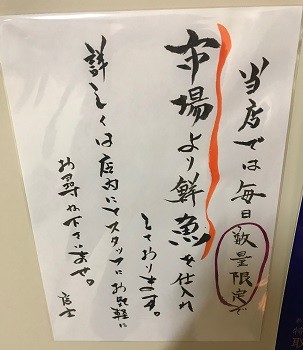 当店では毎日数量限定で
市場より鮮魚を仕入れ
しております。
詳しくは店内にてスタッフにお気軽に
お尋ね下さいませ。
店主